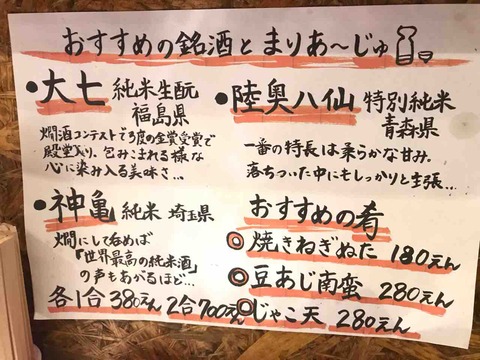 おすすめの銘酒とまりあ〜じゅ
●大七 純米生酛
福島県
燗酒コンテストで3度の金賞受賞で
殿堂入り。包みこまれる様な
心に染み入る美味さ...
●神亀 純米 埼玉県
燗にして呑めば
「世界最高の純米酒」
の声もあがるほど...
各1合380えん 2合700えん
●陸奥八仙 特別純米
青森県
一番の特長は柔らかな甘み。
落ちついた中にもしっかりと主張...
おすすめの肴
焼きねぎぬた 180えん
豆あじ南蛮 280えん
じゃこ天 280えん